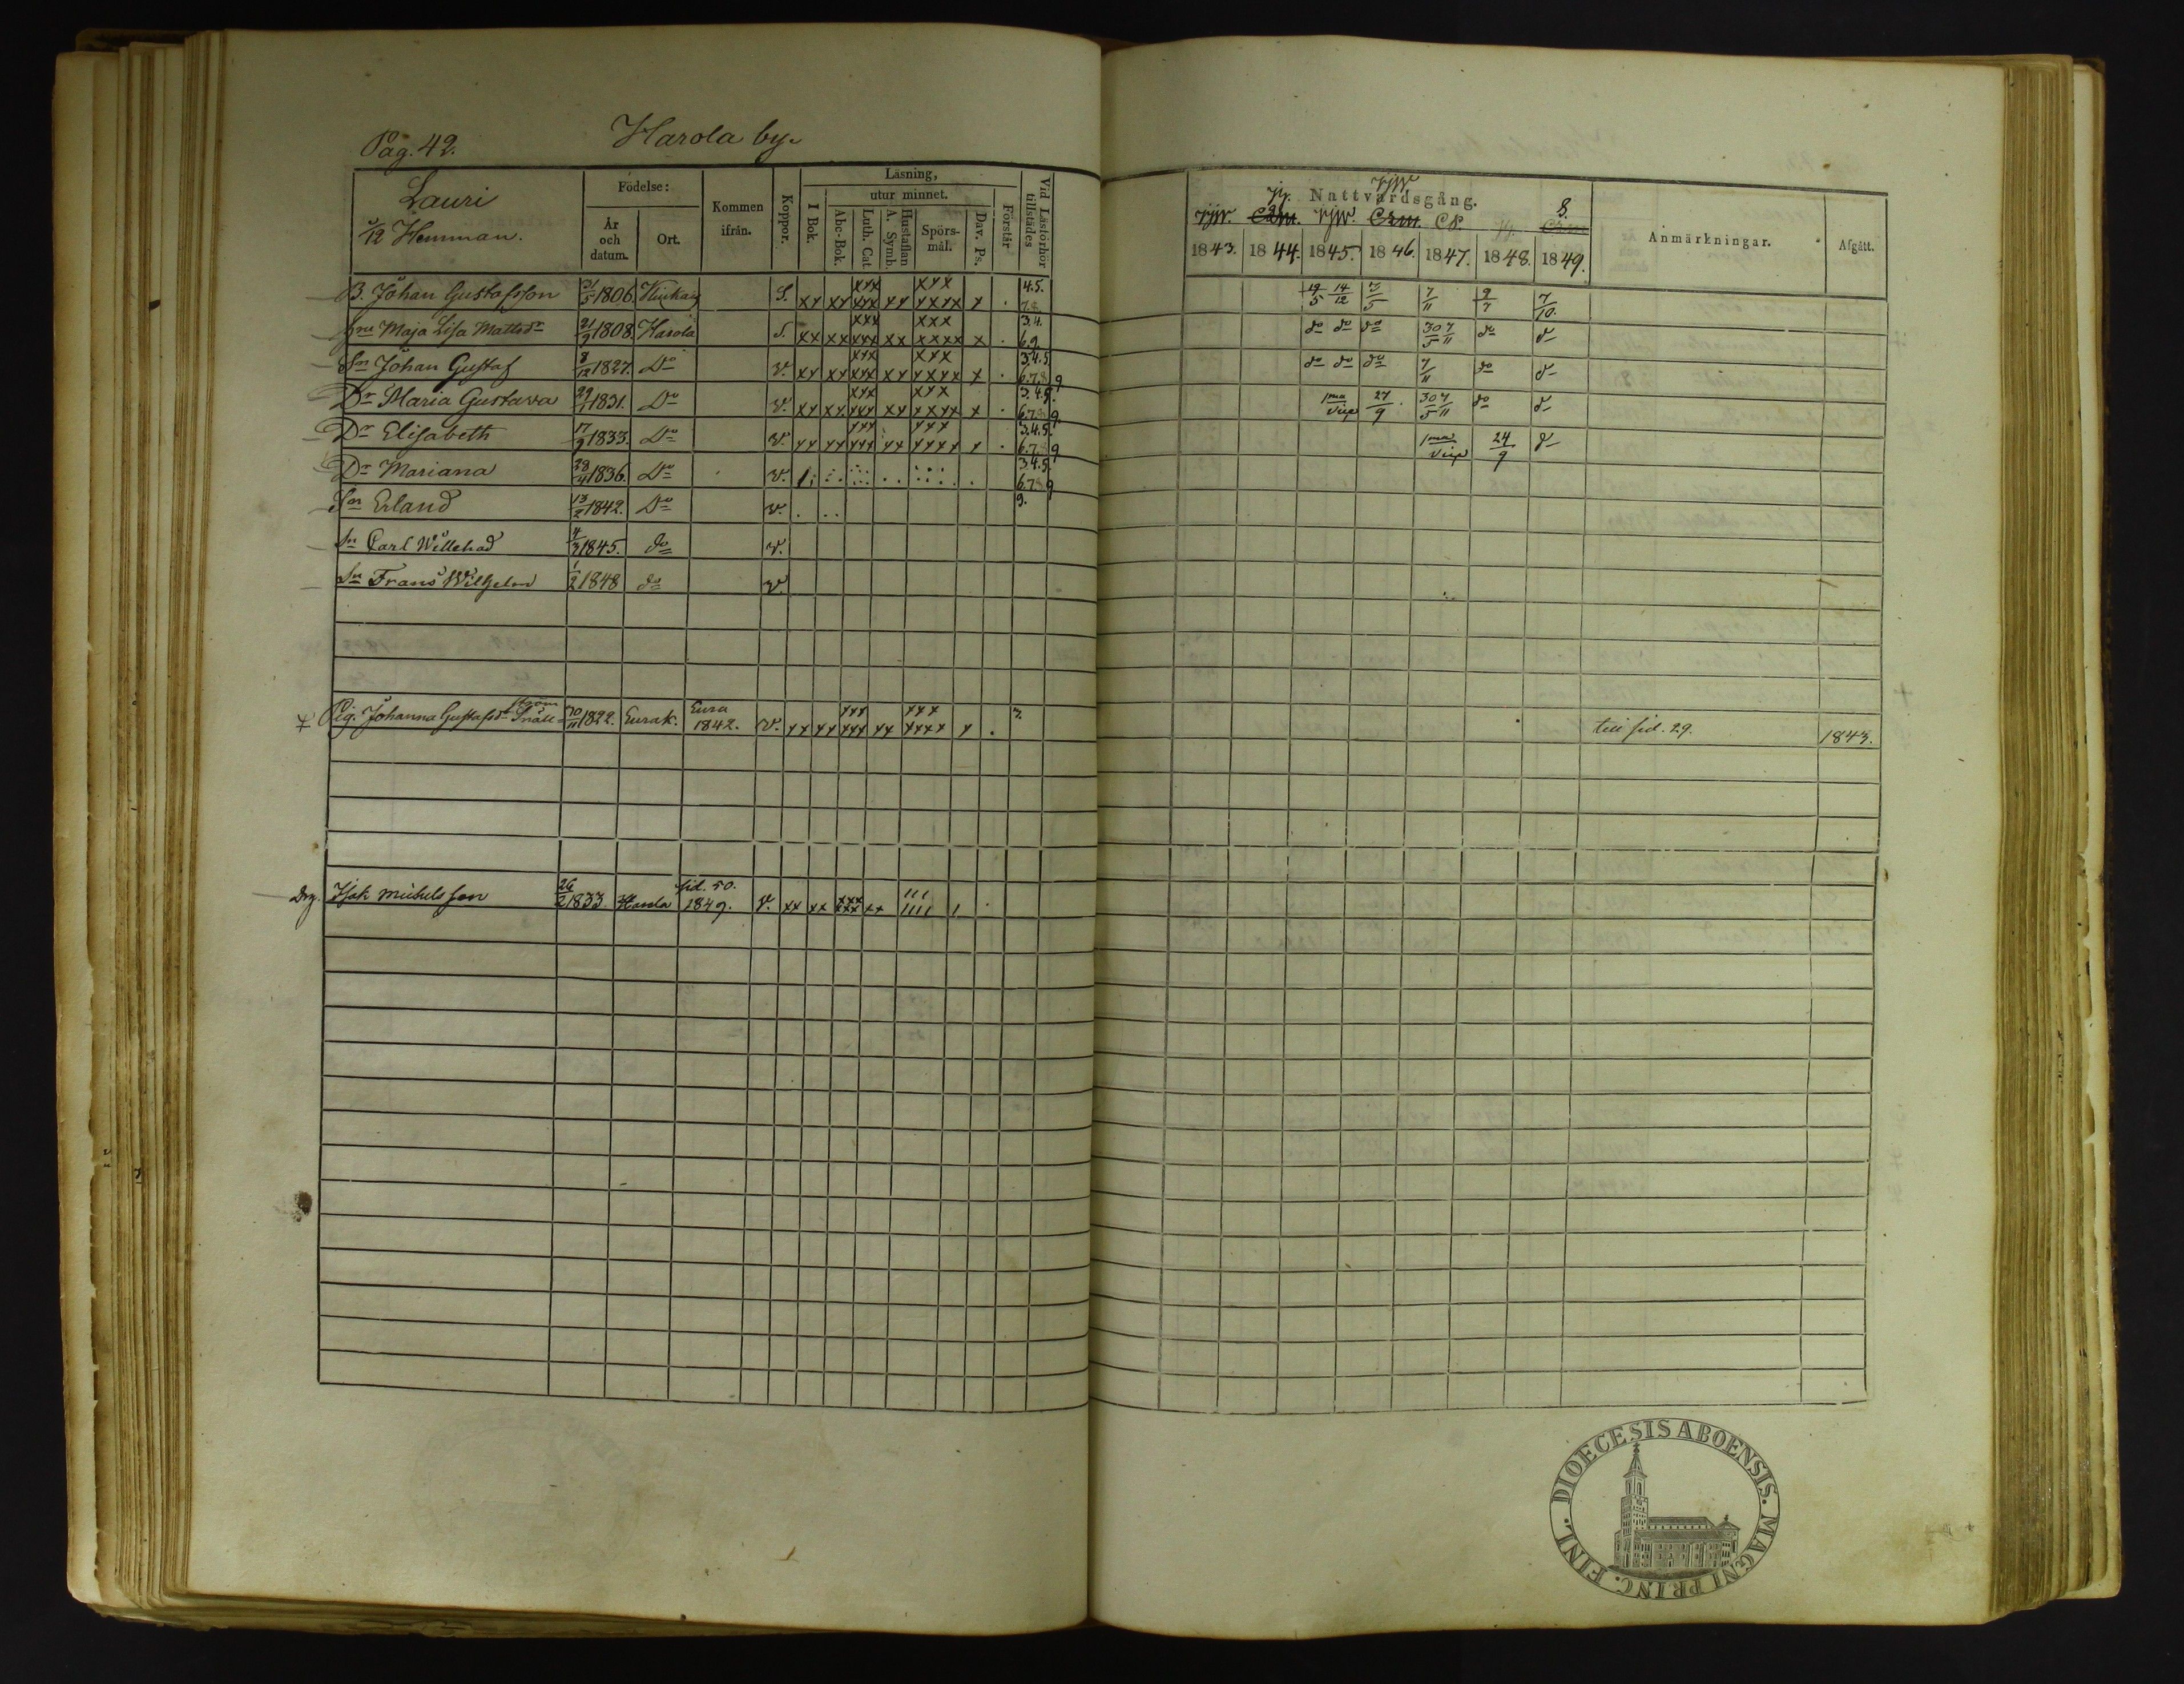 Pag. 42.
Harola by.
Lauri
5/12 Hemman.
Födelse:
År och datum.
Ort.
Kommen ifrån.
Koppor.
Läsning,
I Bok.
utur minnet.
Abc-Bok.
Luth. Cat
Hustaflan A. Symb.
Spörs-mål.
Dav. Ps.
Förstår
Vid Läsförhör tillstädes
Nattvardsgång.
1843. 1844. 1845. 1846. 1847. 1848. 1849.
Anmärkningar.
Afgått.
B. Johan Gustafsson 31/5 1806. S. xx xx xxx xxx xx xxx xxxx x . 4.5. 7.8. 19/5 14/12 3/5 7/11 9/7 7/10.
Maja Lisa Mattsdr 21/9 1808. Harola S. xx xx xxx xxx xx xxx xxxx x . 3.4. 6.9. do do do 30/5 7/11 do d-
Sn Johan Gustaf 8/12 1827. Do v. xx xx xxx xxx xx xxx xxxx x . 3.4.5. 6.7.8 9 do do do 7/11 do d-
Dr Maria Gustava 29/1 1831. Do v. xx xx xxx xxx xx xxx xxxx x . 3.4.5. 6.7.8 9 1ma vice 27/9 30/5 7/11 do d-
Dr Elisabeth 17/9 1833. Do v. xx xx xxx xxx xx xxx xxxx x . 3.4.5. 6.7.8 9 1ma vice 24/9 d-
Dr Mariana 28/4 1836. Do v. 3.4.5. 6.7.8 9
Sn Erland 13/2 1842. Do v. . . . 9.
Sn Carl Willehad 4/3 1845. do v.
Sn Frans Wilhelm 1/2 1848 do v.
Pig. Johanna Gustafsdr 30/11 1822. Eurak. Eura 1842. v. xx xx xxx xxx xx xxx xxxx x . 3. till sid. 29. 1843.
Drg. Isak Michelsson 26/2 1833 Harola sid. 50. 1849. v. xx xx xxx xxx xx ııı ıııı ı .
DIOECESIS ABOENSIS. MAGNI PRINC. FINL.